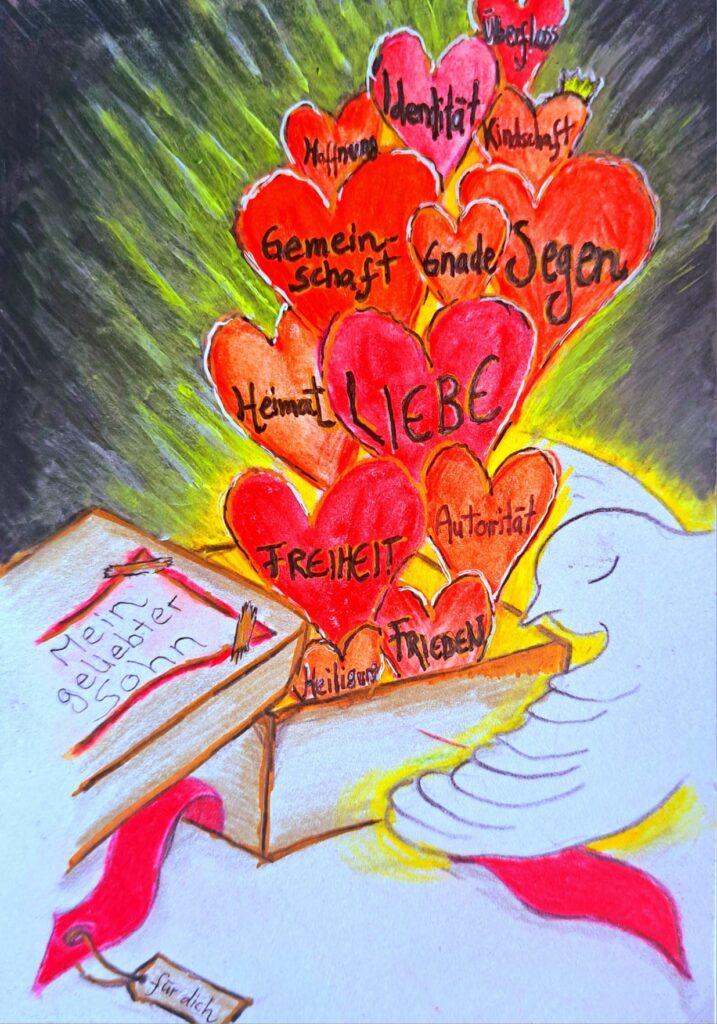 Überfluss
Identität
Hoffnung
Kindschaft
Gemein-
schaft
Gnade
Segen
Heimat
LIEBE
FREIHEIT
Autorität
FRIEDEN
Heiligung
Mein
geliebter
Sohn
für dich